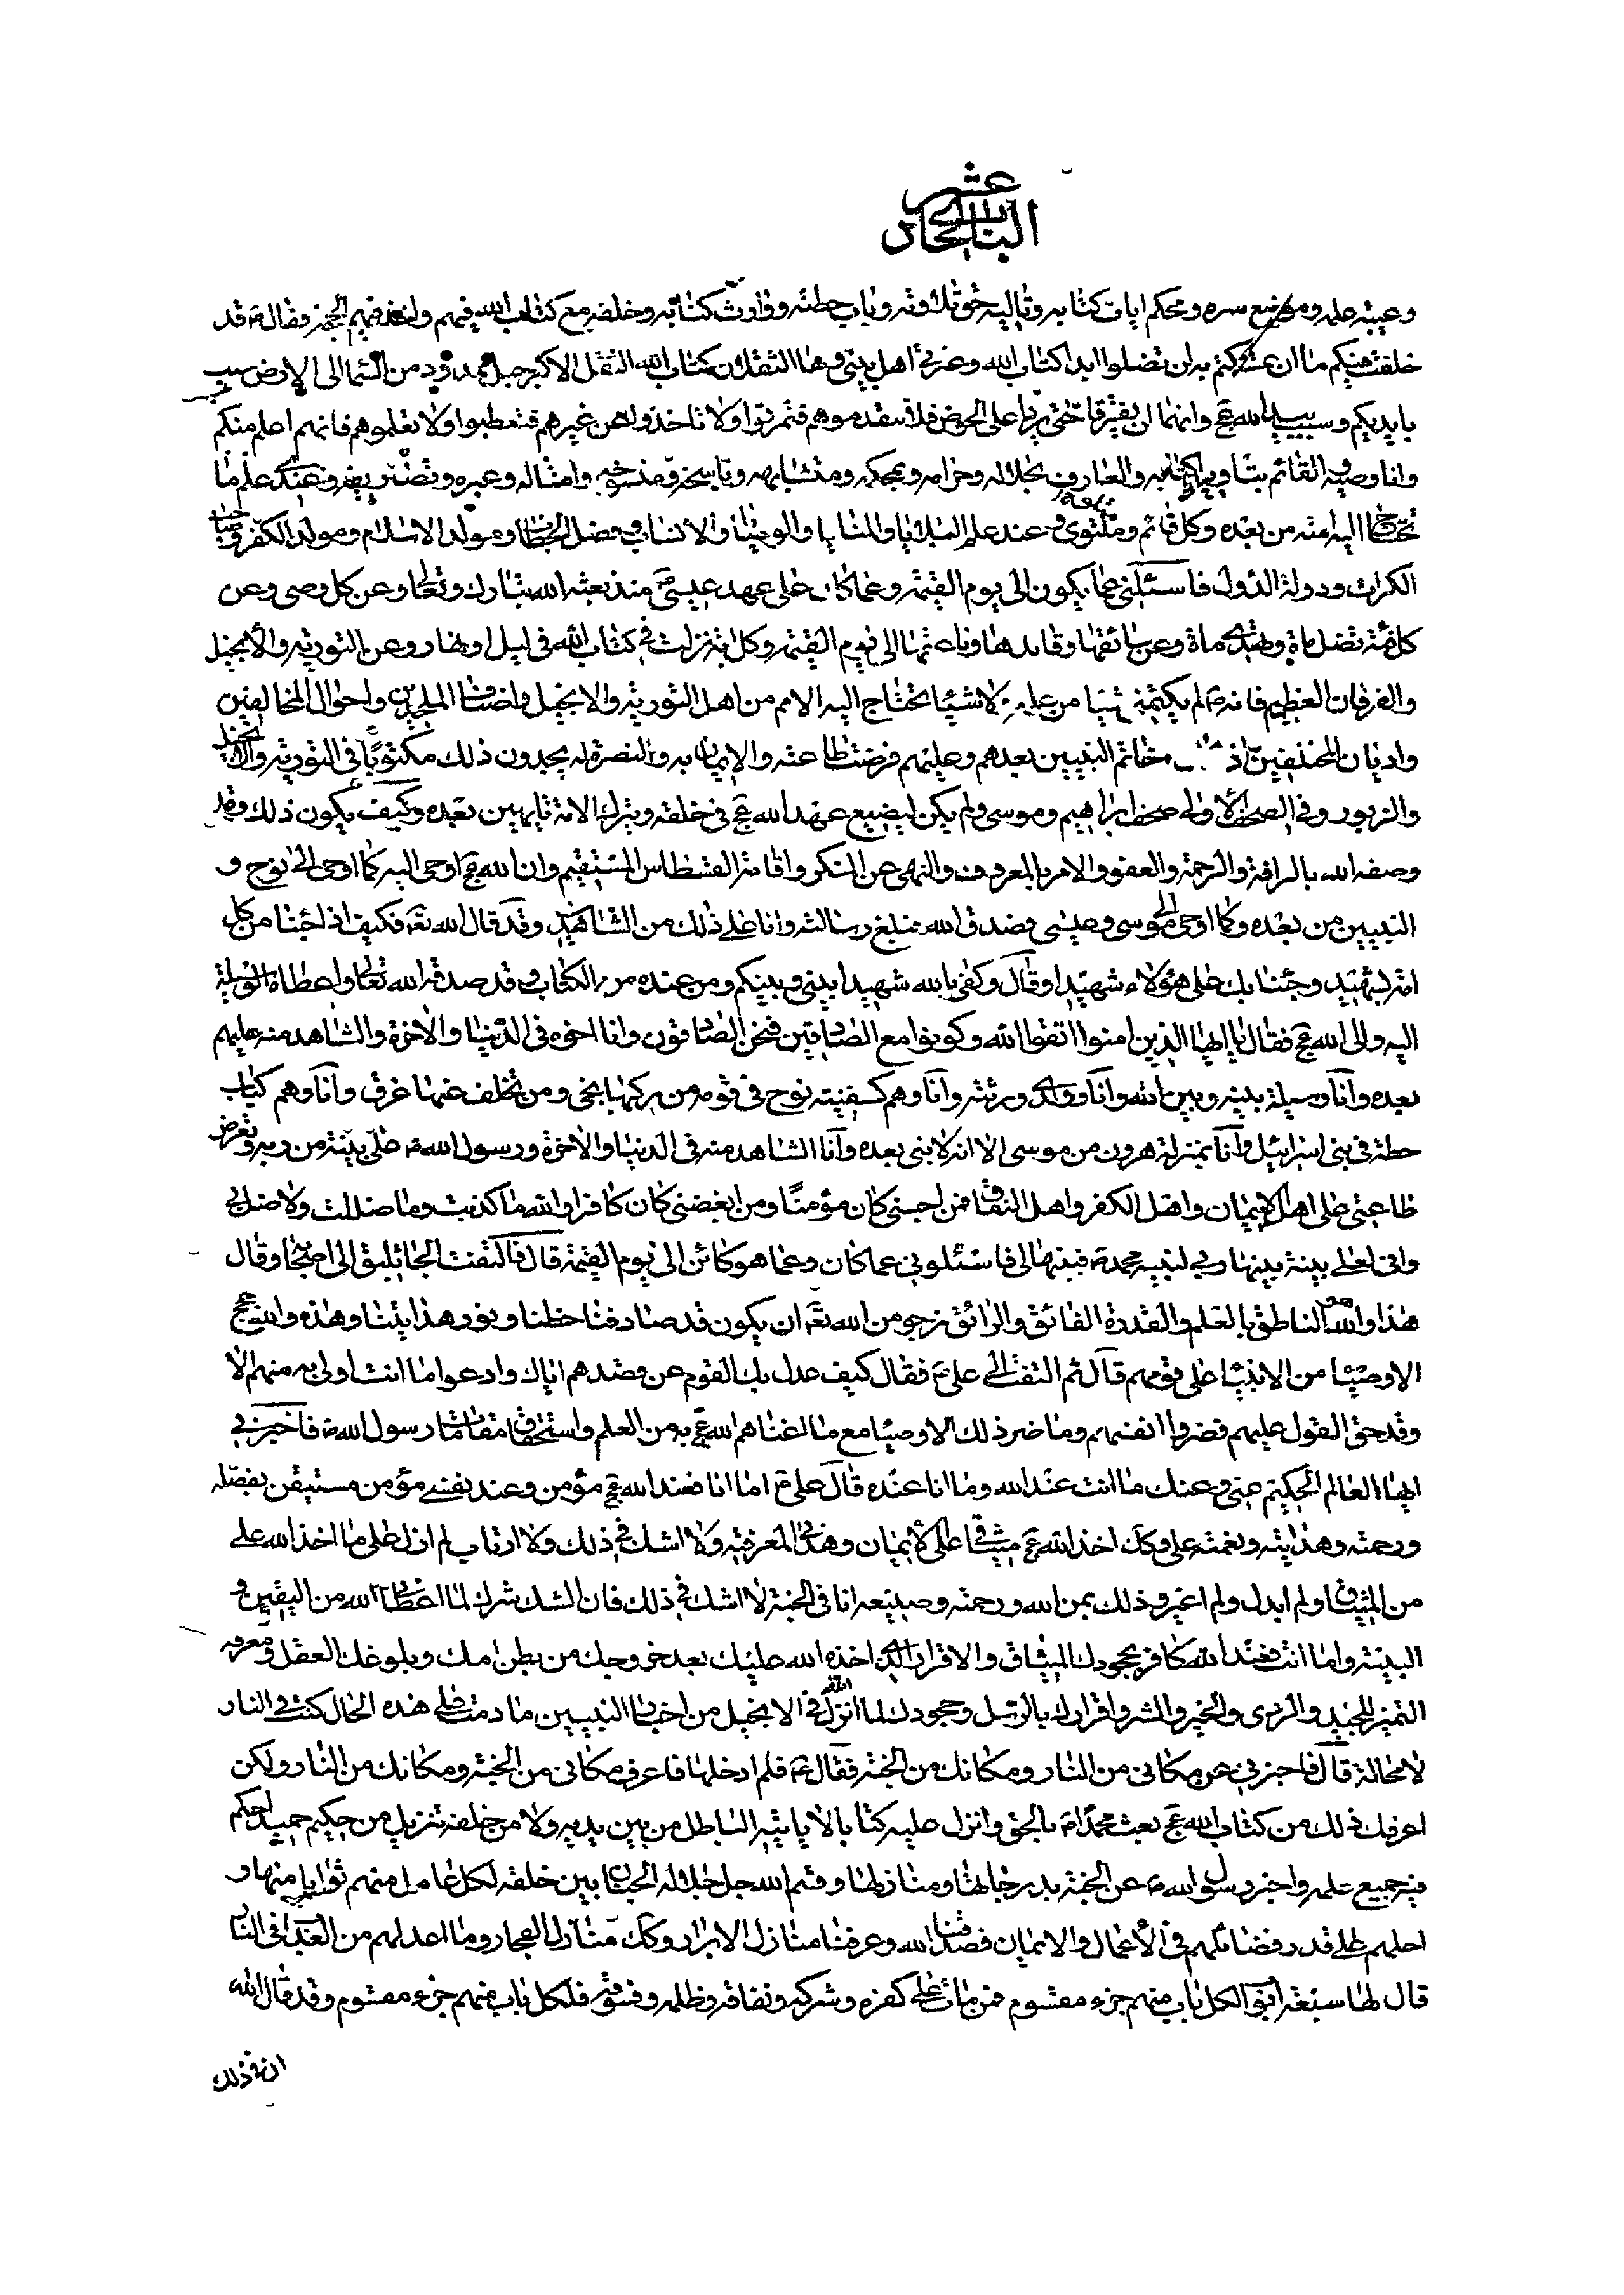 الباب الحادي عشر
وعيبة علمه وموضع سره ومحكم ايات كتابه وتاليه حق تلاوته وباب حطته ووارث كتابه وخلفه مع كتاب الله فيهم واخذ فيهم الحجة فقال ص قد
خلفت فيكم ما ان تمسكتم به لن تضلوا ابدا كتاب الله وعترتي اهل بيتي وهما الثقلان كتاب الله الثقل الاكبر حبل ممدود من السماء الى الارض سبب
بايديكم وسبب بيد الله عج وانهما لن يفترقا حتى يردا على الحوض فلا تتقدموهم فتمرقوا ولا تاخذوا عن غيرهم فتعطبوا ولا تعلموهم فانهم اعلم منكم
وانا وصيه القائم بتاويل كتابه والعارف بحلاله وحرامه وبمحكمه ومتشابهه وناسخه ومنسوخه وامثاله وعبره وتصاريفه وعندي علم ما
تحتاج اليه امته من بعده وكل قائم وملتوي وعندي علم البلايا والمنايا والوصايا والانساب وفصل الخطاب ومولد الاسلام ومولد الكفر وصاحب
الكرات ودولة الدول فاسئلني عما يكون الى يوم القيمة وعما كان على عهد عيسى ع منذ بعثه الله تبارك وتعالى وعن كل وصي وعن
كل فئة تضل ماة وتهدي ماة وعن سائقها وقايدها وناعقها الى يوم القيمة وكل اية نزلت في كتاب الله في ليل او نهار وعن التورية والانجيل
والفرقان العظيم فانه ص لم يكتمني شيئا من علمه ولا شيئا تحتاج اليه الامم من اهل التورية والانجيل واصناف الملحدين واحوال المخالفين
واديان المختلفين اذ خاتم النبيين بعدهم وعليهم فرضت طاعته والايمان به والنصرة له يجدون ذلك مكتوبا في التورية والانجيل
والزبور وفي الصحف الاولى صحف ابراهيم وموسى ولم يكن ليضيع عهد الله عج في خلقه ويترك الامة تايهين بعده وكيف يكون ذلك وقد
وصفه الله بالرافة والرحمة والعفو والامر بالمعروف والنهي عن المنكر واقامة القسطاس المستقيم وان الله عج اوحى اليه كما اوحى الى نوح و
النبيين من بعده وكما اوحى الى موسى وعيسى فصدق الله وبلغ رسالته وانا على ذلك من الشاهدين وقد قال الله تع فكيف اذا جئنا من كل
امة بشهيد وجئنا بك على هؤلاء شهيدا وقال وكفى بالله شهيدا بيني وبينكم ومن عنده من الكتاب وقد صدقه الله تعالى واعطاه الوسيلة
اليه والى الله عج فقال يا ايها الذين امنوا اتقوا الله وكونوا مع الصادقين فنحن الصادقون وانا اخوه في الدنيا والاخرة والشاهد منه عليهم
بعده وانا وسيلة بينه وبين امته وانا وولدي ورثته وانا وهم كسفينة نوح في قومه من ركبها نجى ومن تخلف عنها غرق وانا وهم كباب
حطة في بني اسرائيل وانا بمنزلة هرون من موسى الا انه لا نبي بعده وانا الشاهد منه في الدنيا والاخرة ورسول الله ص على بينة من ربه وتعرض
طاعتي على اهل الايمان واهل الكفر واهل النفاق فمن احبني كان مؤمنا ومن ابغضني كان كافرا والله ما كذبت وما ضللت ولا ضل بي
واني لعلى بينة بينها ربي لنبيه محمد ص فبينها لي فاسئلوني عما كان وعما هو كائن الى يوم القيمة قال فالتفت الجاثليق الى اصحابه وقال
هذا والله هو الناطق بالعلم والقدرة الفائق والرائق نرجو من الله تع ان يكون قد صادفنا حظنا ونور هدايتنا وهذه والله حجج
الاوصياء من الانبياء على قومهم قال ثم التفت الى علي ع فقال كيف عدل بك القوم عن قصدهم اياك وادعوا ما انت اولى به منهم الا
وقد حق القول عليهم فضروا انفسهم وما ضر ذلك الاوصياء مع ما اغناهم الله عج به من العلم واستحقاق مقامات رسول الله ص فاخبرني
ايها العالم الحكيم عني وعنك ما انت عند الله وما انا عنده قال علي ع اما انا فعند الله عج مؤمن وعند نفسي مؤمن مستيقن بفضله
ورحمته وهدايته ونعمته علي وكك اخذ الله عج ميثاقي على الايمان وهداني لمعرفته ولا اشك في ذلك ولا ارتاب لم ازل على ما اخذ الله علي
من الميثاق ولم ابدل ولم اغير وذلك بمن الله ورحمته وصنيعه انا في الجنة لا اشك في ذلك فان الشك شرك لما اعطاني الله من اليقين و
البينة واما انت فعند الله كافر بجحودك الميثاق والاقرار الذي اخذه الله عليك بعد خروجك من بطن امك وبلوغك العقل ومعرفة
التميز للجيد والردي والخير والشر واقرارك بالرسل وجحودك لما انزل الله في الانجيل من اخبار النبيين ما دمت على هذه الحال كنت في النار
لا محالة قال فاخبرني عن مكاني من النار ومكانك من الجنة فقال ع فلم ادخلها فاعرف مكاني من الجنة ومكانك من النار ولكن
اعرفك ذلك من كتاب الله عج بعث محمدا ص بالحق وانزل عليه كتابا لا ياتيه الباطل من بين يديه ولا من خلفه تنزيل من حكيم حميد احكم
فيه جميع علمه واخبر رسول الله ص عن الجنة بدرجاتها ومنازلها وقسم الله جل جلاله الجنان بين خلقه لكل عامل منهم ثوابا منها و
احلهم على قدر فضائلهم في الاعمال والايمان فصدقنا الله وعرفنا منازل الابرار وكك منازل الفجار وما اعد لهم من العذاب في النار
قال لها سبعة ابواب لكل باب منهم جزء مقسوم فمن مات على كفره وشركه ونفاقه وظلمه وفسقه فلكل باب منهم جزء مقسوم وقد قال الله
ان في ذلك